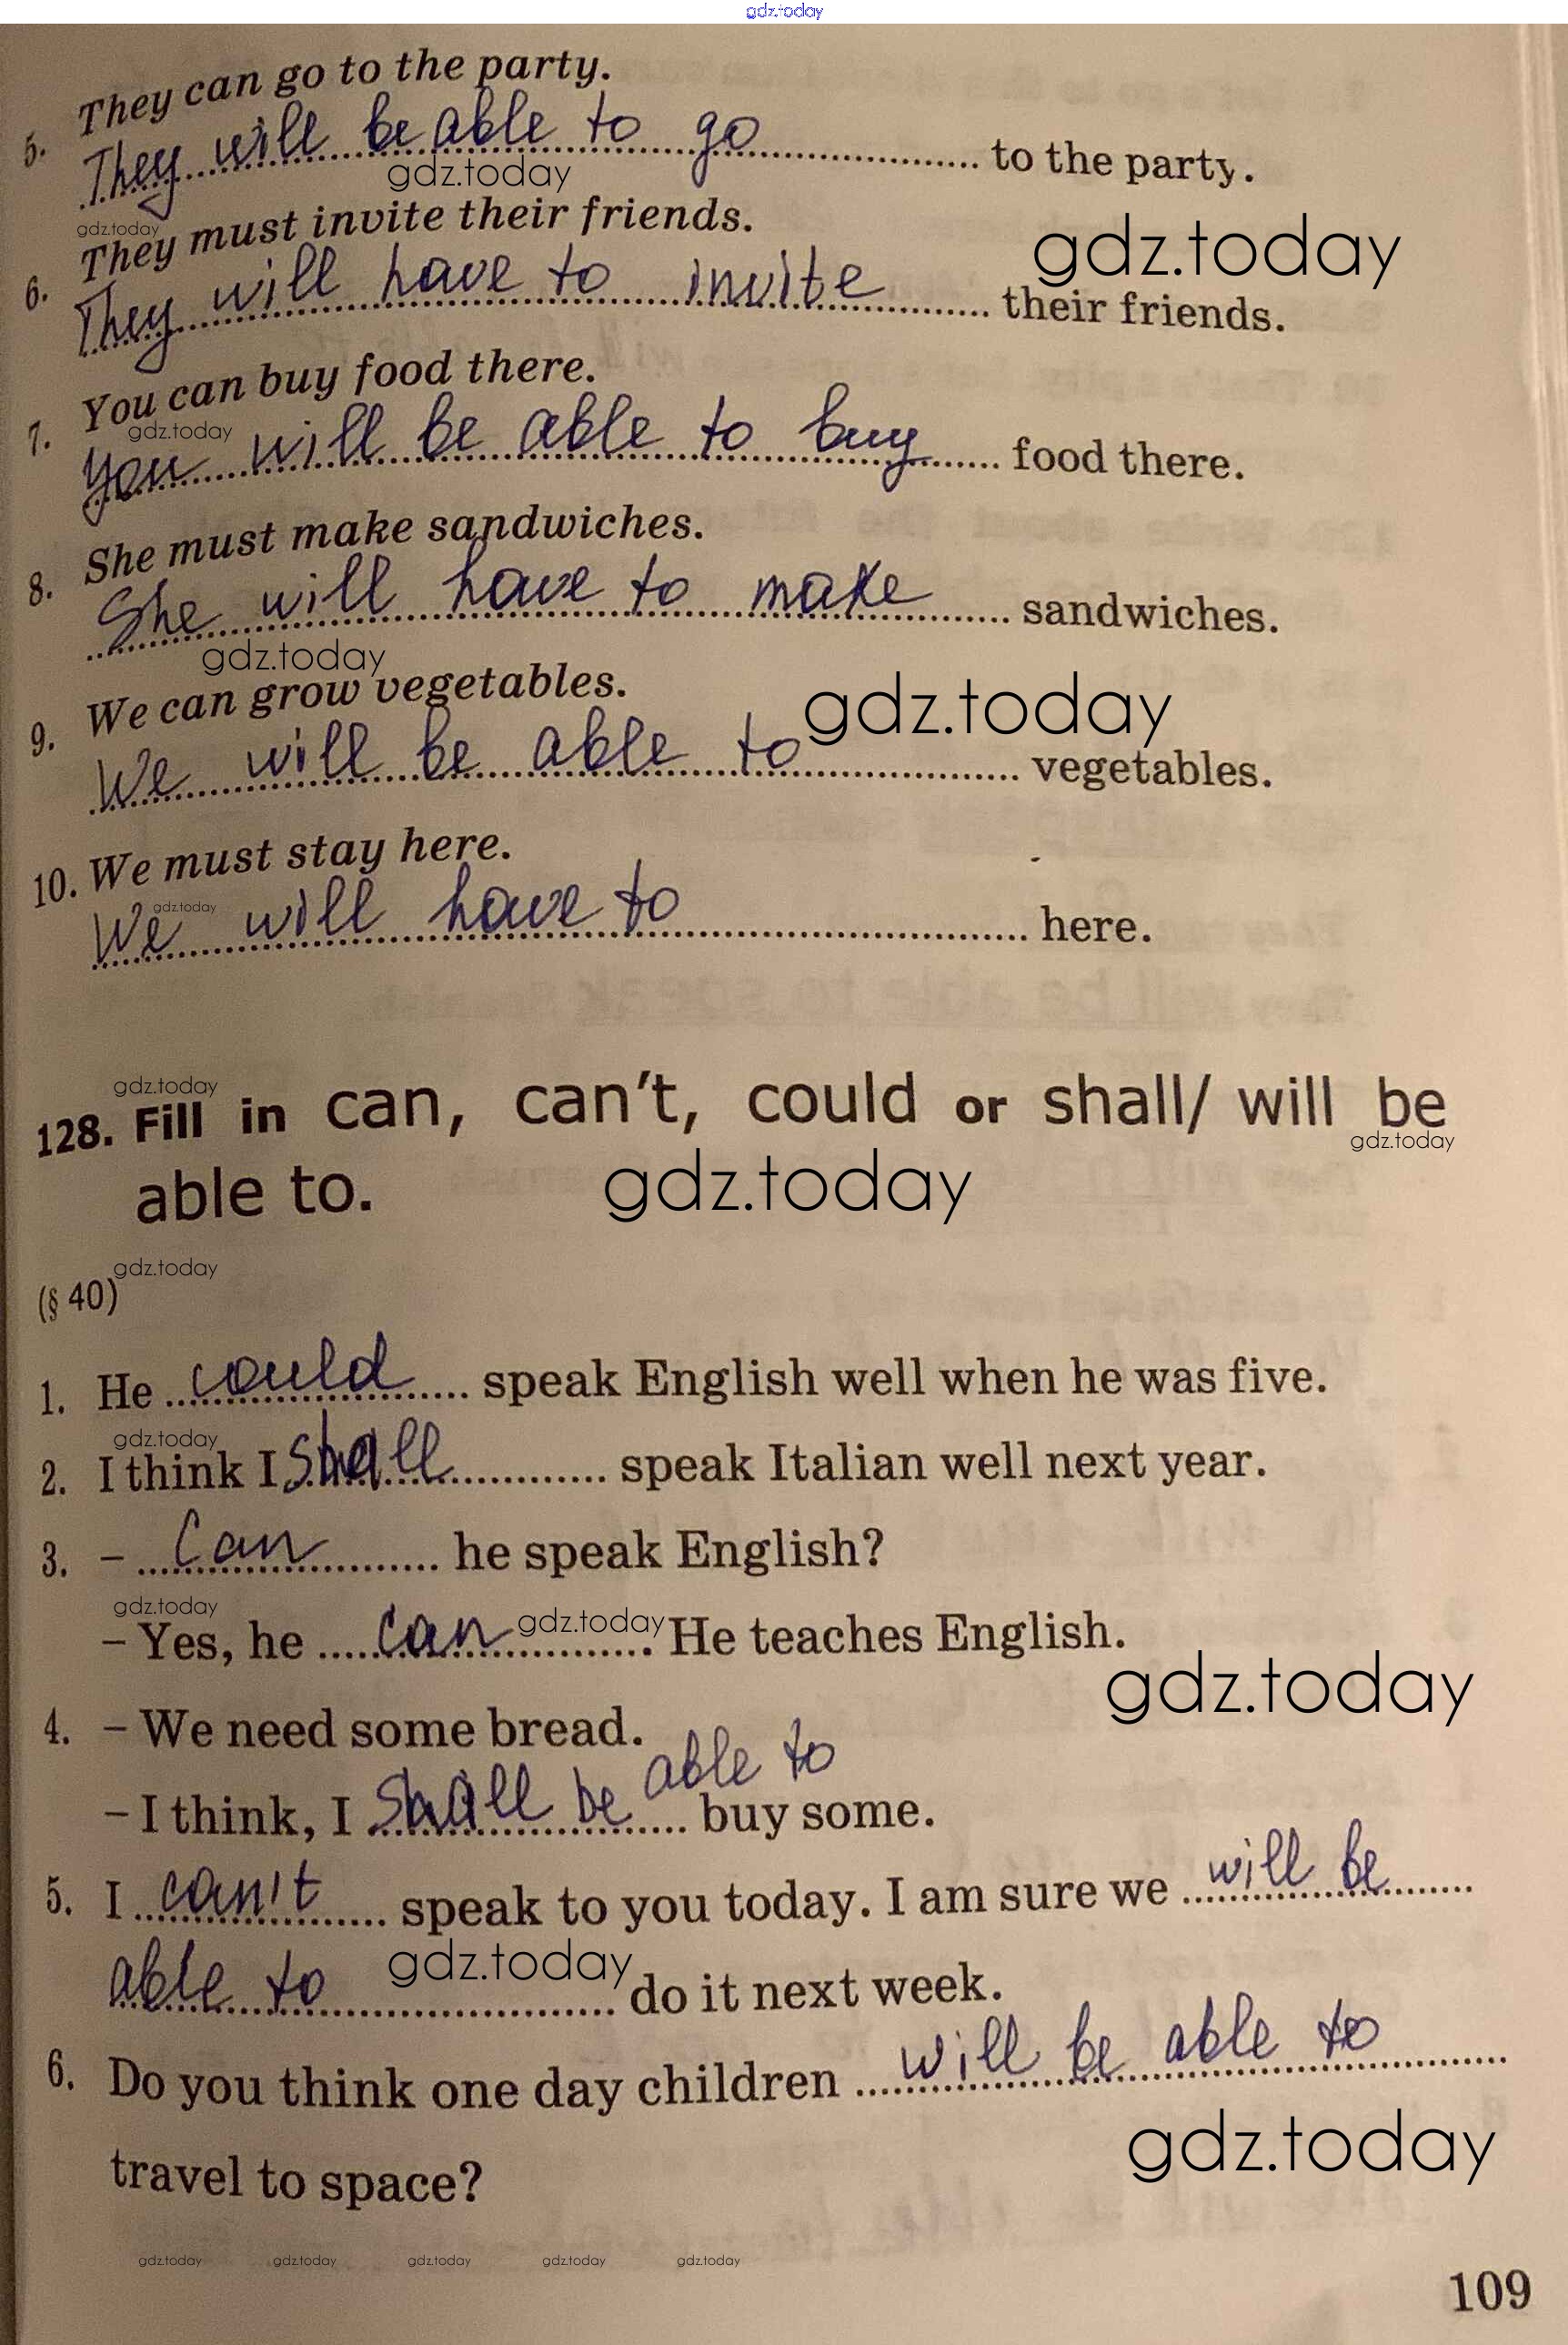 gdz.today
They can go to the party.
5. They will be able to go to the party.
gdz.today
gdz.today
They must invite their friends.
gdz.today
6. They will have to invite their friends.
You can buy food there.
gdz.today
7. You will be able to buy food there.
She must make sandwiches.
8. She will have to make sandwiches.
gdz.today
We can grow vegetables.
gdz.today
9. We will be able to vegetables.
10. We must stay here.
gdz.today
We will have to here.
gdz.today
128. Fill in can, can't, could or shall/ will be
gdz.today
able to.
gdz.today
gdz.today
(§ 40)
1. He could speak English well when he was five.
gdz.today
2. I think I shall speak Italian well next year.
3. – Can he speak English?
gdz.today
– Yes, he can. He teaches English.
gdz.today
gdz.today
4. – We need some bread.
able to
– I think, I shall be buy some.
5. I can't speak to you today. I am sure we will be
able to do it next week.
gdz.today
6. Do you think one day children will be able to
gdz.today
travel to space?
gdz.today gdz.today gdz.today gdz.today gdz.today
109